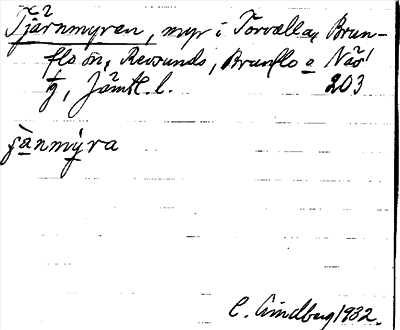 Tjärnmyren, myr i Torvalla, Brun-
flo sn, Revsunds, Brunflo o Näs
tg, Jämtl. l. 203
jànmỳra
C. Lindberg 1932.